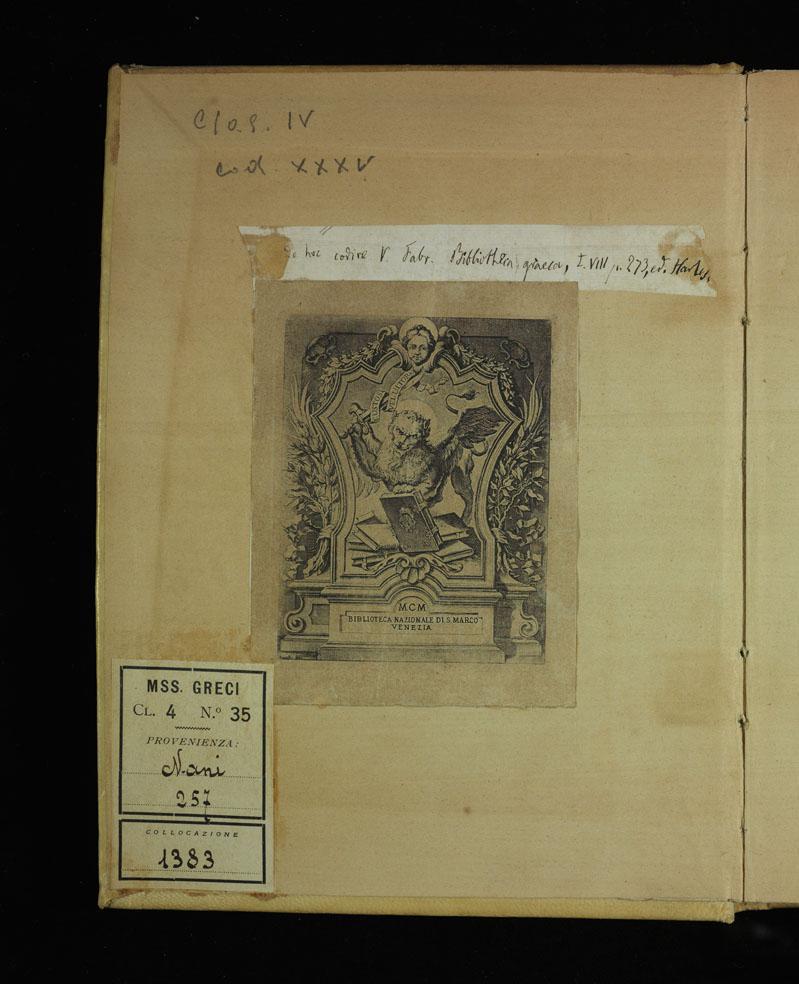 Clas. IV
cod. XXXV
De hoc codice V. Fabr. Bibliotheca graeca, T. VIII p. 273, ed. Harles.
M.C.M.
BIBLIOTECA NAZIONALE DI S. MARCO
VENEZIA
MSS. GRECI
CL. 4 N.º 35
PROVENIENZA:
Nani
257
COLLOCAZIONE
1383